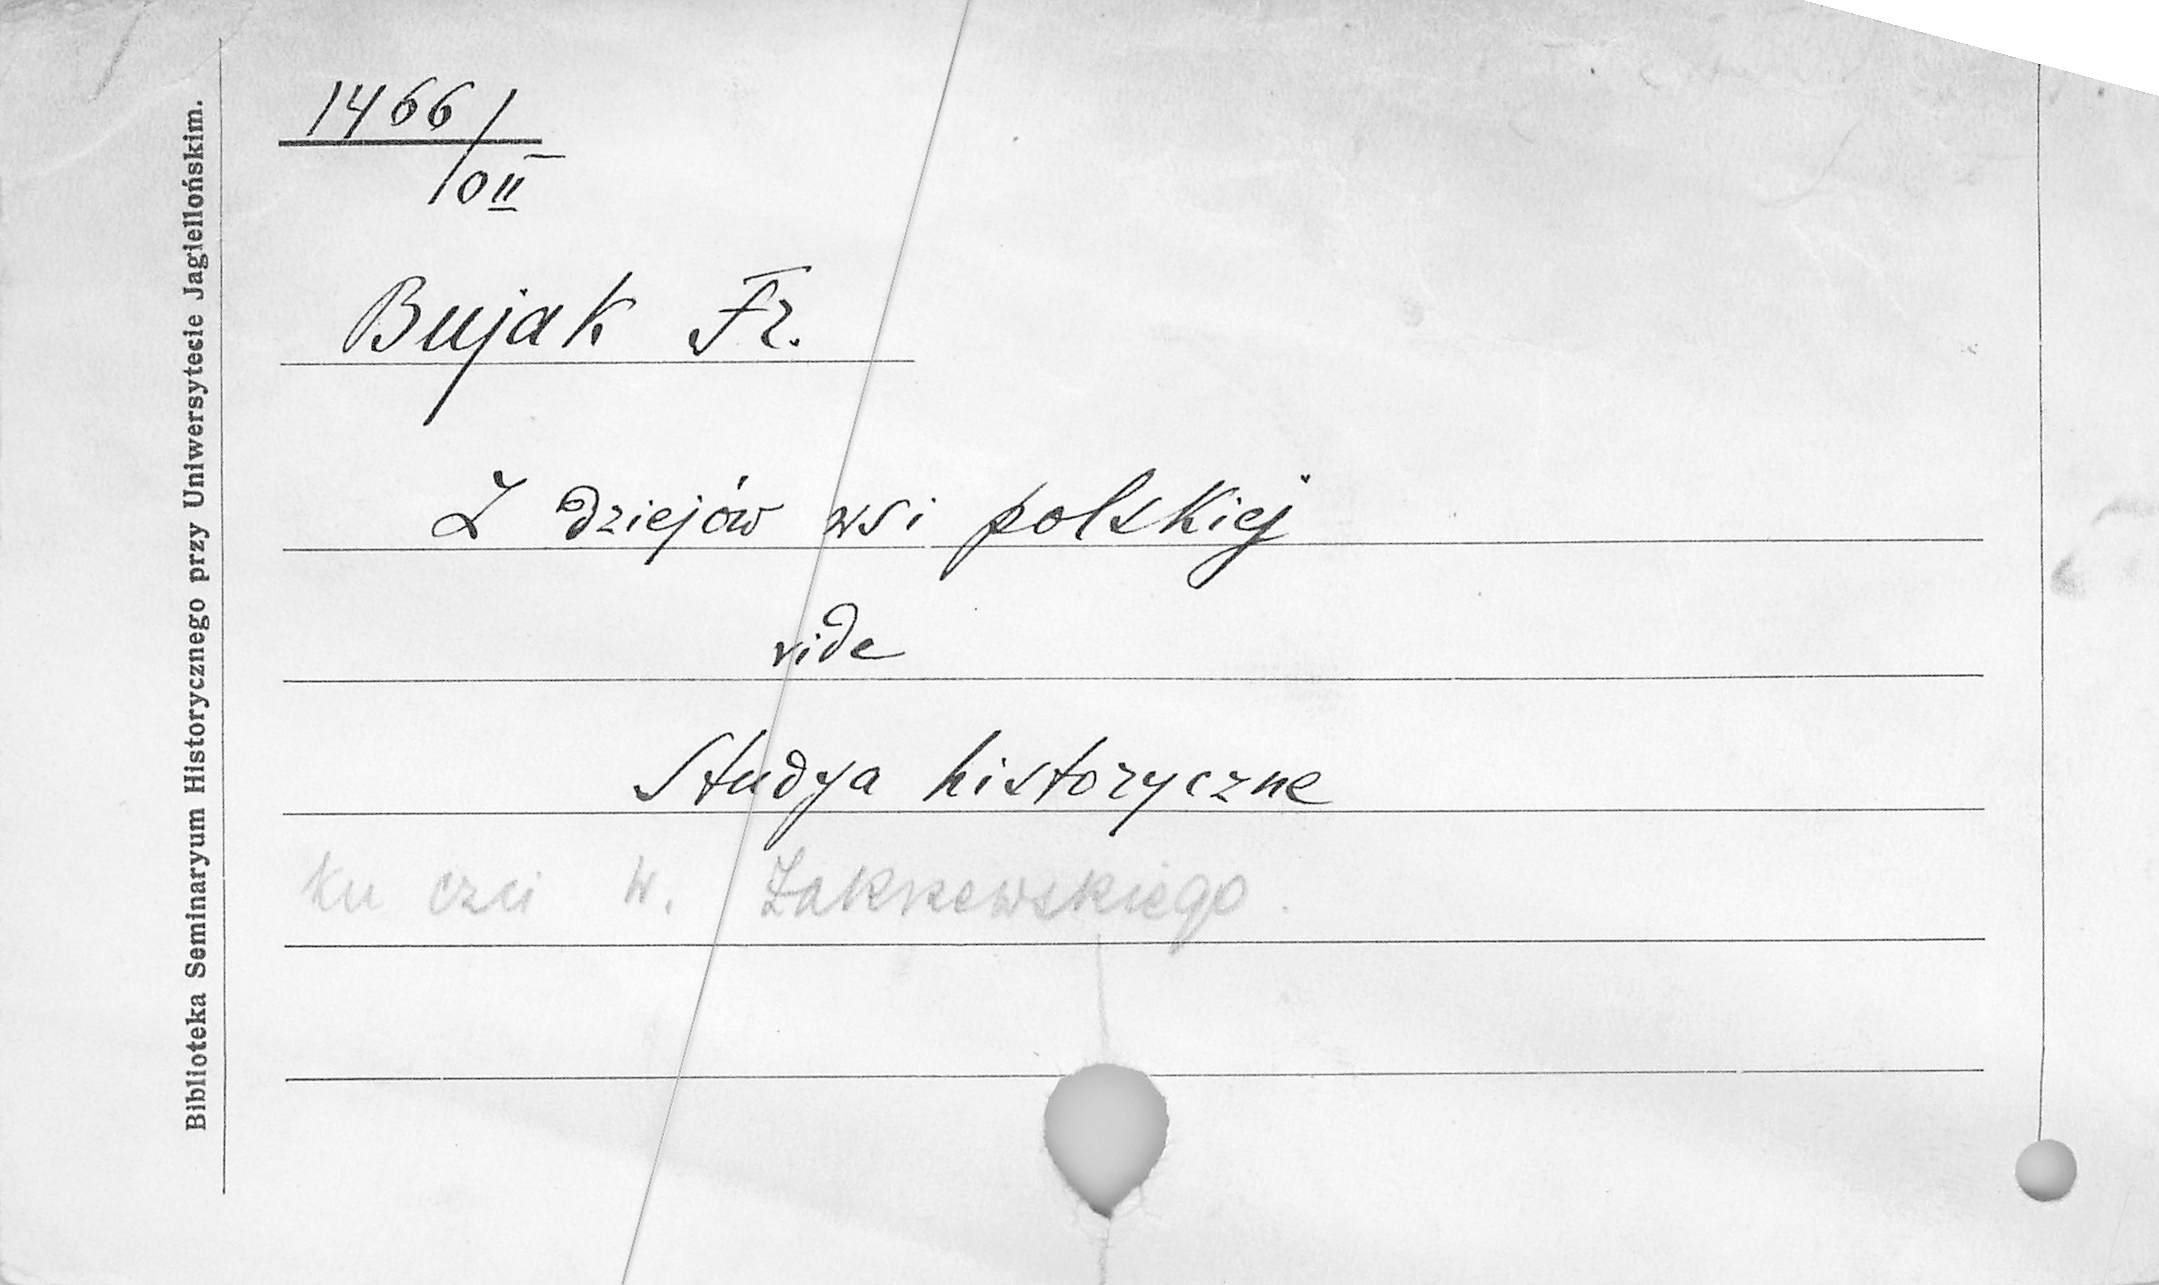 Biblioteka Seminaryum Historycznego przy Uniwersytecie Jagiellońskim.
1466/
/0II
Bujak Fr.
Z dziejów wsi polskiej
vide
Studya historyczne
ku czci W. Zakrzewskiego.